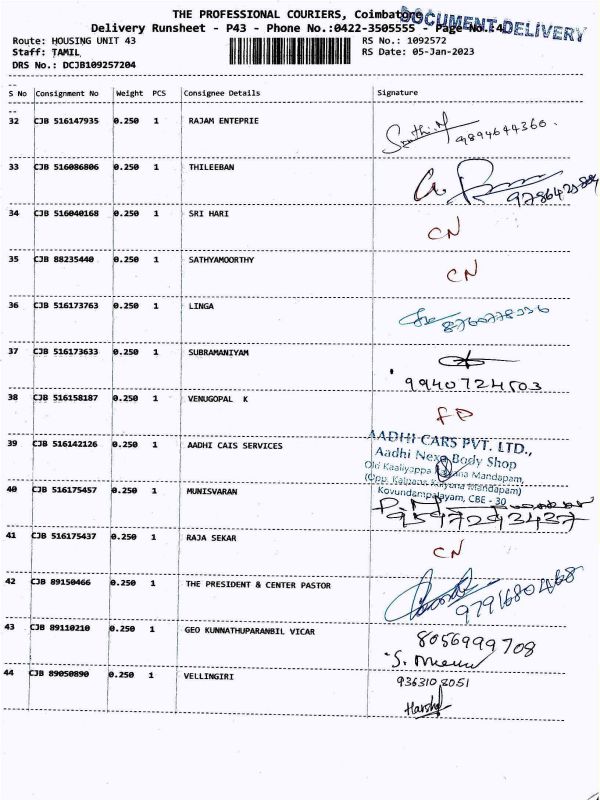 THE PROFESSIONAL COURIERS, Coimbatore
DOCUMENT DELIVERY
Delivery Runsheet - P43 - Phone No.:0422-3505555 - Page No.:4
Route: HOUSING UNIT 43
RS No.: 1092572
Staff: TAMIL
RS Date: 05-Jan-2023
DRS No.: DCJB109257204
S No Consignment No Weight PCS Consignee Details Signature
32 CJB 516147935 0.250 1 RAJAM ENTEPRIE
9894644360.
33 CJB 516086806 0.250 1 THILEEBAN
34 CJB 516040168 0.250 1 SRI HARI
CN
35 CJB 88235440 0.250 1 SATHYAMOORTHY
CN
36 CJB 516173763 0.250 1 LINGA
37 CJB 516173633 0.250 1 SUBRAMANIYAM
9940724503
38 CJB 516158187 0.250 1 VENUGOPAL K
FD
39 CJB 516142126 0.250 1 AADHI CAIS SERVICES
AADHI CARS PVT. LTD.,
Aadhi Nexa Body Shop
Old Kaaliyappa Mandapam,
(Opp. Kalyana Mandapam)
Kovundampalayam, CBE - 30
40 CJB 516175457 0.250 1 MUNISVARAN
9597293437
41 CJB 516175437 0.250 1 RAJA SEKAR
CN
42 CJB 89150466 0.250 1 THE PRESIDENT & CENTER PASTOR
9791680468
43 CJB 89110210 0.250 1 GEO KUNNATHUPARANBIL VICAR
8056999708
44 CJB 89050890 0.250 1 VELLINGIRI
9363108051
Harsha